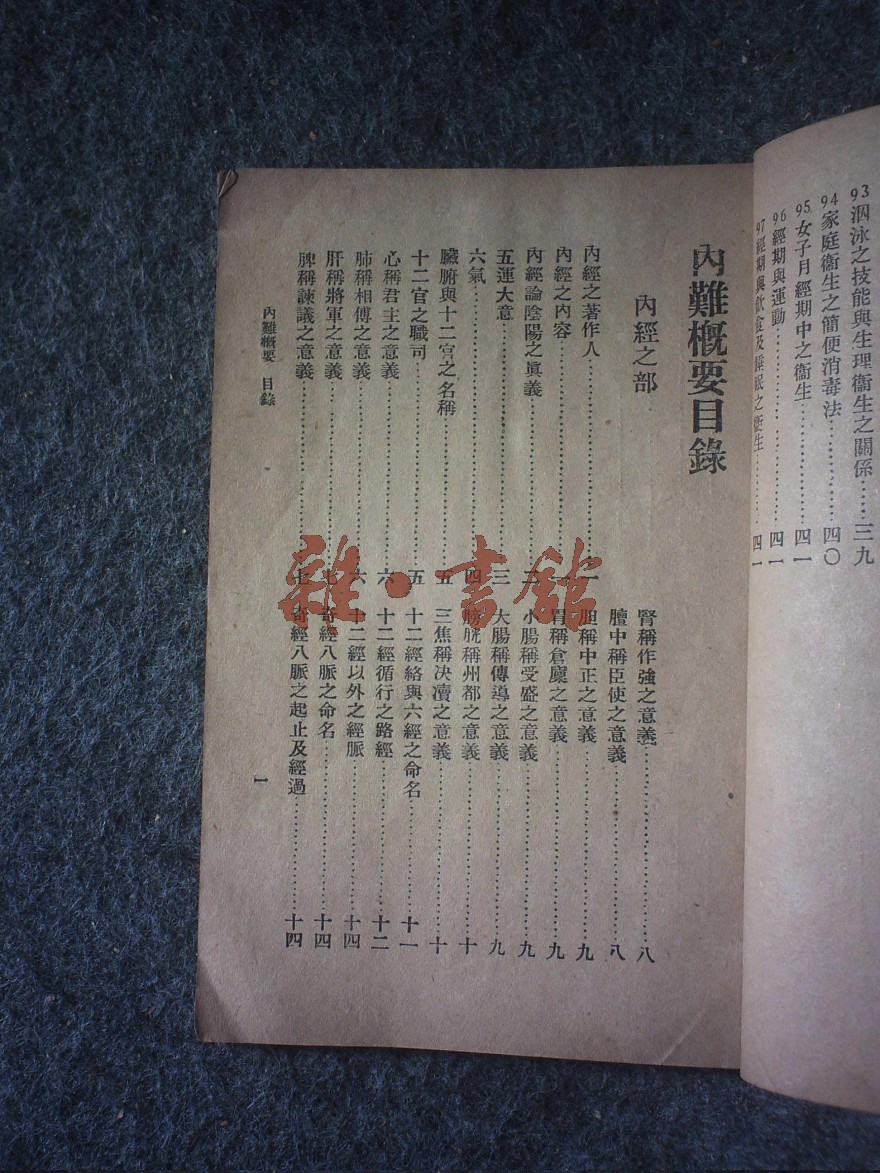 93 泅泳之技能與生理衞生之關係……三九
94 家庭衞生之簡便消毒法……四〇
95 女子月經期中之衞生……四一
96 經期與運動……四一
97 經期與飮食及睡眠之衞生……四一
內難概要目錄
內經之部
內經之著作人……一
內經之內容……一
內經論陰陽之眞義……二
五運大意……三
六氣……四
臟腑與十二宫之名稱……五
十二官之職司……五
心稱君主之意義……六
肺稱相傅之意義……六
肝稱將軍之意義……七
脾稱諫議之意義……七
腎稱作強之意義……八
膻中稱臣使之意義……八
胆稱中正之意義……九
胃稱倉廩之意義……九
小腸稱受盛之意義……九
大腸稱傳導之意義……九
膀胱稱州都之意義……十
三焦稱決瀆之意義……十
十二經絡與六經之命名……十一
十二經循行之路經……十二
十二經以外之經脈……十四
奇經八脈之命名……十四
奇經八脈之起止及經過……十四
內難概要 目錄
一
雜·書館